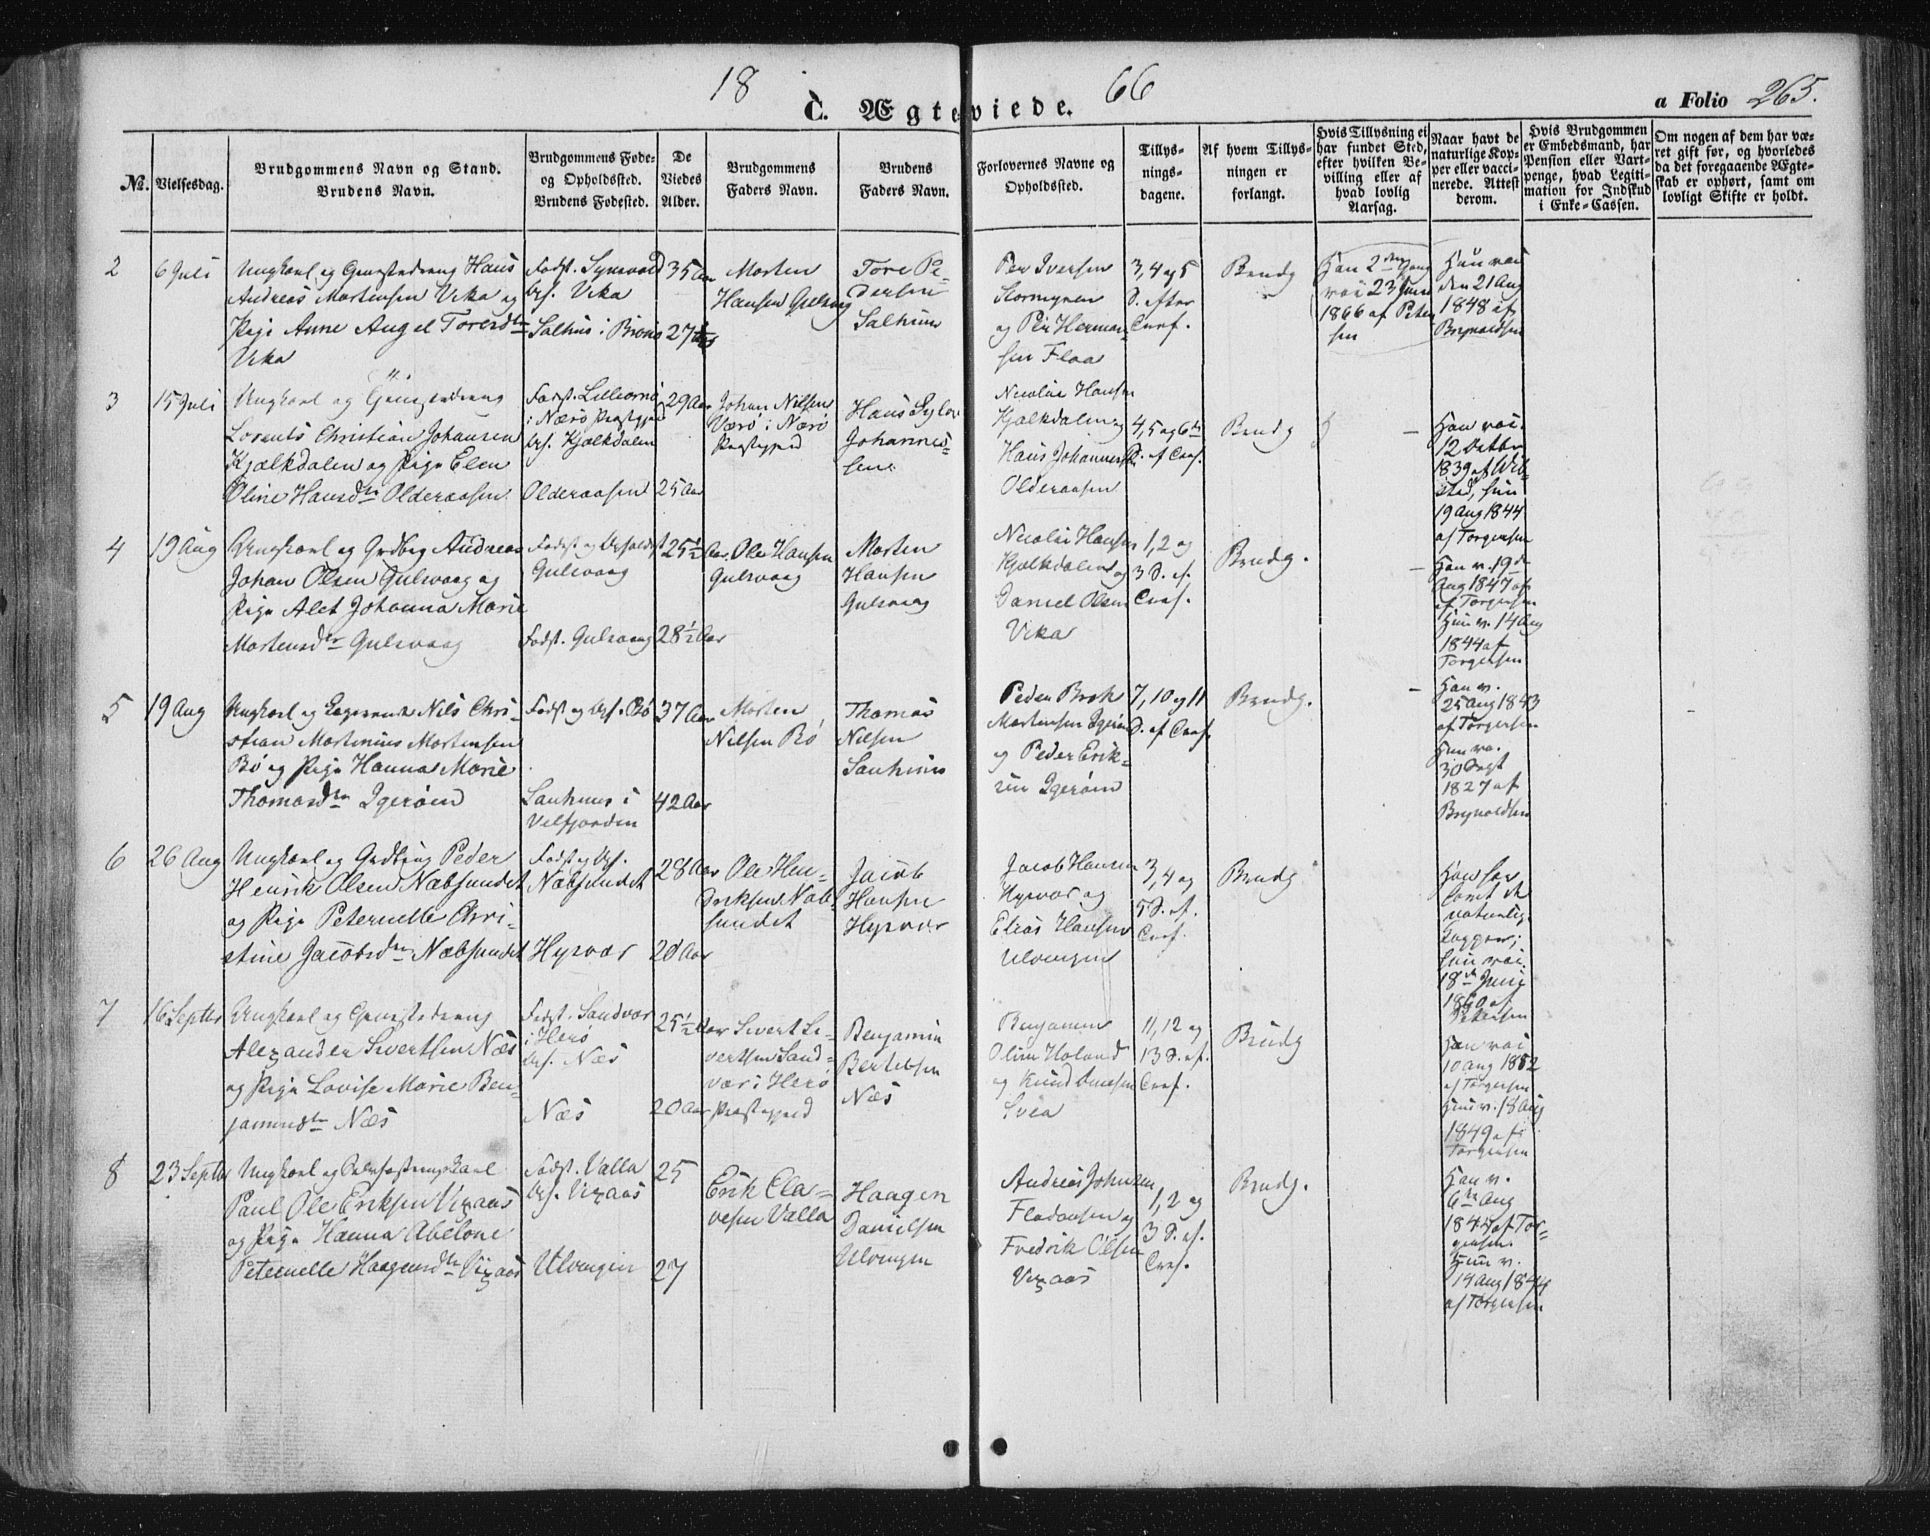 18 66
C. Ægteviede.
a Folio 265.
No. Vielsesdag.
Brudgommens Navn og Stand.
Brudens Navn.
Brudgommens Føde-
og Opholdssted.
Brudens Fødested.
De
Viedes
Alder.
Brudgommens
Faders Navn.
Brudens
Faders Navn.
Forlovernes Navne og
Opholdssted.
Tillys-
nings-
dagene.
Af hvem Tillys-
ningen er
forlangt.
Hvis Tillysning ei
har fundet Sted,
efter hvilken Be-
villing eller af
hvad lovlig
Aarsag.
Naar havt de
naturlige Kop-
per eller vacci-
nerede. Attest
derom.
Hvis Brudgommen
er Embedsmand, har
Pension eller Vart-
penge, hvad Legiti-
mation for Indskud
i Enke-Cassen.
Om nogen af dem har væ-
ret gift før, og hvorledes
da det foregaaende Ægte-
skab er ophørt, samt om
lovligt Skifte er holdt.
2
6 Juli
Ungkarl og Hans
Andreas Mortensen Vika og
Pige Anne Angel Toresdtr
Vika
Fødst.
Vika
Salhus i Brønø
35 Aar
27
Morten
Hansen Gulsvaag
Tore Pe-
dersen
Salhuus
Per Iversen
Stormyren
og Per Herman-
sen Flaa
3, 4 og 5
S. efter
Brudg
Han 2den Gang
23 Juni
1866 af Peter
sen
Han var
den 21 Aug
1848 af
Brynoldsen
3
15 Juli
Ungkarl og
Lorents Christian Johansen
Kjælkdalen og Pige Elen
Oline Hansdtr Olderaasen
Fødst.
i Nærø Præstegjeld
Kjælkdalen
Olderaasen
29 Aar
25 Aar
Johan Nilsen
Værø i Nærø
Præstegjeld
Hans
Johannes-
sen
Nicolai Hansen
Kjælkdalen og
Hans Johannessen
Olderaasen
4, 5 og 6te
Brudg
Han var
12
1839 af
hun
19 Aug 1844
af Torgersen
4
19 Aug
Ungkarl og Andreas
Johan Olsen Gulsvaag og
Pige Alet Johanna Marie
Mortensdtr Gulsvaag
Gulsvaag
Fødst. Gulsvaag
25½ Aar
28½ Aar
Ole Hansen
Gulsvaag
Morten
Hansen
Gulsvaag
Nicolai Hansen
Kjælkdalen og
Daniel Olsen
Vika
1, 2 og
3 S. ef.
Brudg.
Han v. 19de
Aug 1847 af
af Torgersen
Hun v. 14 Aug
1844 af
Torgersen
5
19 Aug
Ungkarl og Nils Chri-
stian Martinius Mortensen
Bø og Pige Hanna Marie
Thomasdtr Igerøen
Fødst og Bø
i
Velfjorden
37 Aar
42 Aar
Morten
Nilsen Bø
Thomas
Nilsen
Peder Brok
Mortensen Igerøen
og Peder Erik-
sen Igerøen
7, 10 og 11
S. ef
Brudg.
Han v.
25 Aug 1843
af Torgersen
Hun va.
30 Sept
1827 af
Brynoldsen
6
26 Aug
Ungkarl og Peder
Henrik Olsen Næbsundet
og Pige Peternelle Chri-
stine Jacobsdtr Næbsundet
Fødst og
Næbsundet
Hysvær
28 Aar
20 Aar
Ole Hen-
driksen Næb-
sundet
Jacob
Hansen
Hysvær
Jacob Hansen
Hysvær og
Elias Hansen
Ulvingen
3, 4 og
5 S. ef.
Brudg
Han har
havt de
naturlige
Kopper;
hun var
18de Juni
1860 af
Petersen
7
16 Septbr
Ungkarl og
Alexander Sivertsen Næs
og Pige Lovise Marie Ben-
jaminsdtr Næs
Fødst. Sandvær
i Herø
Næs
Næs
25½ Aar
20 Aar
Sivert Si-
vertsen Sand-
vær i Herø
Præstegjeld
Benjamin
Bertelsen
Næs
Benjamin
Olsen Holand
og Knud
11, 12 og
13 S. ef.
Brudg
Han var
10 Aug 1852
af Torgersen
Hun v. 18 Aug
1849 af
Torgersen
8
23 Septbr
Ungkarl og
Paul Ole Eriksen Vixaas
og Pige Hanna Abelone
Peternelle Haagensdtr Vixaas
Fødst. Valla
Vixaas
Ulvingen
25
27
Erik Cla-
vesen Valla
Haagen
Danielsen
Ulvingen
Andreas Johnsen
Fladaasen og
Fredrik Olsen
Vixaas
1, 2 og
3 S. ef.
Brudg.
Han v.
6te Aug
1844 af Tor-
gersen.
Hun v.
14 Aug 1844
af Torgersen